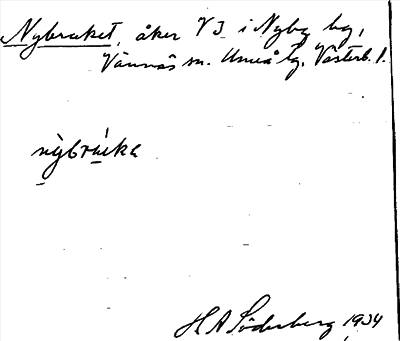 Nybruket, åker V3 i Nyby by,
Vännäs sn. Umeå tg. Västerb. l.
nỳbrúκka
H A Söderberg 1934